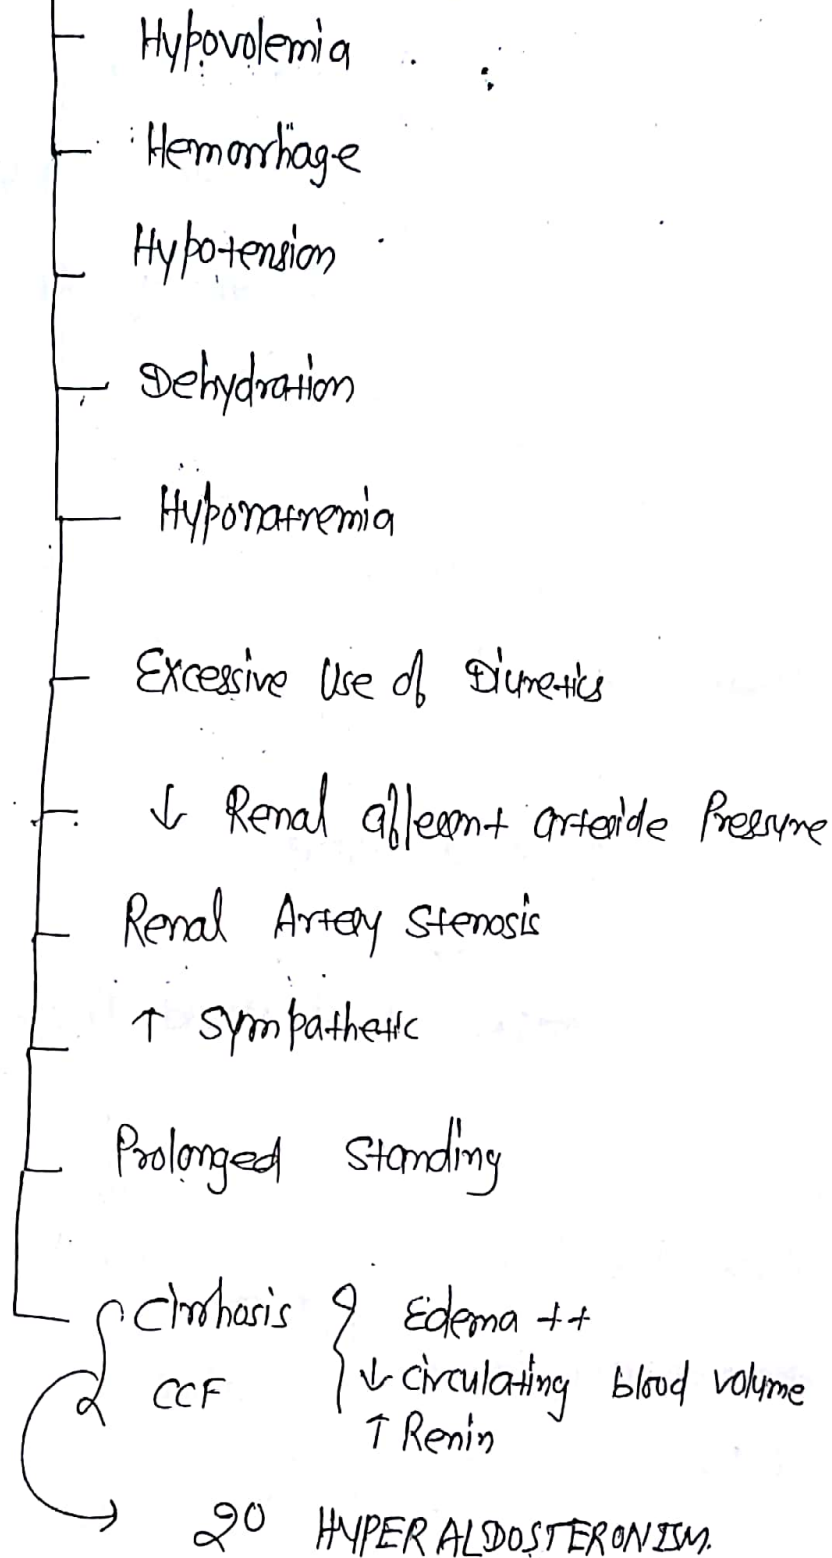 Hypovolemia
Hemorrhage
Hypotension
Dehydration
Hyponatremia
Excessive Use of Diuretics
↓ Renal afferent arteriole Pressure
Renal Artery Stenosis
↑ Sympathetic
Prolonged Standing
Cirrhosis Edema ++
CCF ↓ circulating blood volume
↑ Renin
2° HYPERALDOSTERONISM.